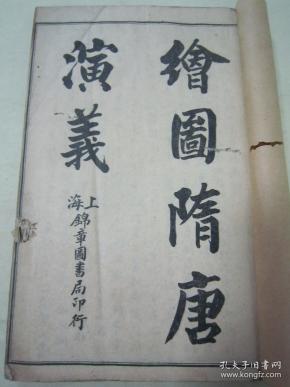 繪圖隋唐
演義
上海錦章圖書局印行
孔夫子旧书网
www.kongfz.com